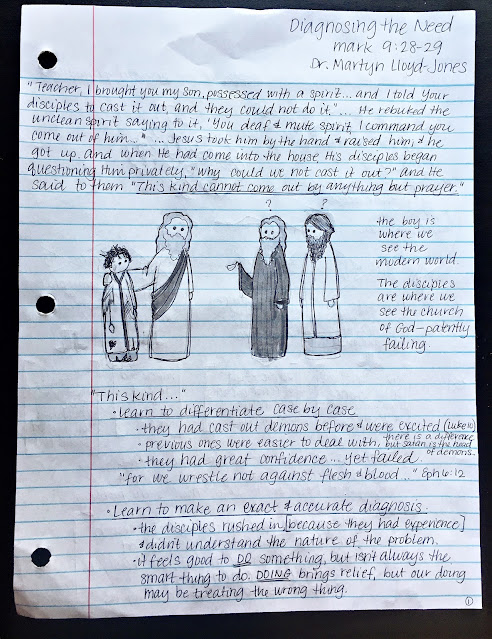 Diagnosing the Need
mark 9:28-29
Dr. Martyn Lloyd-Jones
"Teacher, I brought you my son, possessed with a spirit... and I told your
disciples to cast it out, and they could not do it."... He rebuked the
unclean spirit saying to it, 'You deaf & mute spirit, I command you
come out of him..." "... Jesus took him by the hand & raised him, & he
got up. and when He had come into the house, His disciples began
questioning Him privately, "why could we not cast it out?" and He
said to them "This kind cannot come out by anything but prayer."
? ?
the boy is
where we
see the
modern world.
The disciples
are where we
see the church
of God - patently
failing.
"This kind..."
• Learn to differentiate case by case
• they had cast out demons before & were excited (Luke 10)
• previous ones were easier to deal with, there is a difference,
but satan is the head
of demons.
• they had great confidence... yet failed.
"for we wrestle not against flesh & blood.." Eph 6:12
• Learn to make an exact & accurate diagnosis.
• the disciples rushed in [because they had experience]
& didn't understand the nature of the problem.
• it feels good to DO something, but isn't always the
smart thing to do. DOING brings relief, but our doing
may be treating the wrong thing.
1